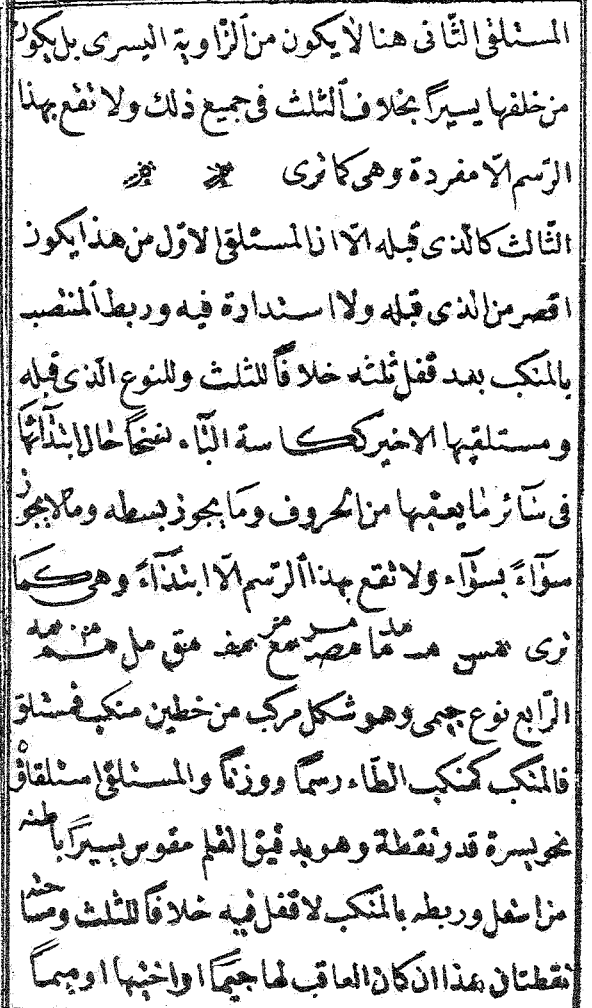 المستلقى الثّانى هنا لا يكون من الزّاوية اليسرى بل يكون
من خلفها يسيرًا بخلاف الثلث فى جميع ذلك ولا تقع بهذا
الرّسم الّا مفردة وهى كما ترى
الثّالث كالّذى قبله الّا ان المستلقى الاوّل من هذا يكون
اقصر من الذى قبله ولا استدارة فيه وربط المنتصب
بالمنكب بعد قفل ثلثه خلافًا للثلث وللنوع الّذى قبله
ومستلقيها الاخير ككاسة البّاء نسخًا حال ابتدآئها
فى سآئر ما يعقبها من الحروف وما يجوز بسطه وما لا يجوز
سوآءً بسوآء ولا تقع بهذا الرّسم الّا ابتدآءً وهى كما
ترى همس هد ما مع هف مق مل
الرّابع نوع جيمى وهو شكل مركب من خطين منكب فمستلق
فالمنكب كمنكب الطّاء رسمًا ووزنًا والمستلقى استلقاؤه
نحو يسرة قدر نقطة وهو يدقيق القلم مقوس يسيرًا باطنه
من اسفل وربطه بالمنكب لا قفل فيه خلافًا للثلث ومساحته
نقطتان هذا ان كان العاقب لها جيمًا او اختيها او ميمًا